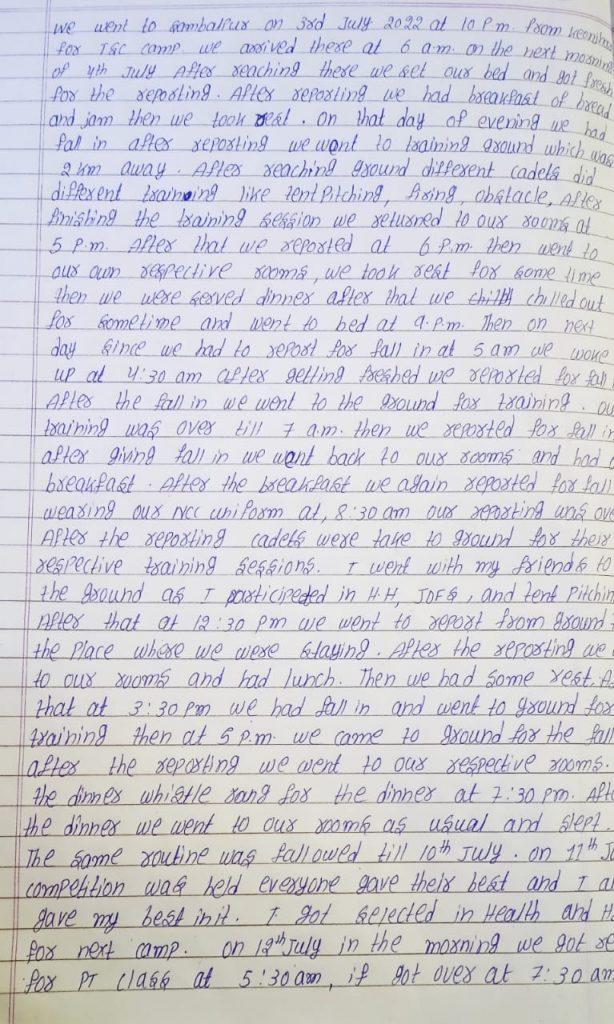 we went to Sambalpur on 3rd July 2022 at 10 P.m. from
for TSC camp. we arrived there at 6 a.m. on the next morning
of 4th July After reaching there we set our bed and got fresh
for the reporting. After reporting we had breakfast of bread
and jam then we took rest. on that day of evening we had
fall in after reporting we went to training ground which was
2 km away. After reaching ground different cadets did
different training like tent Pitching, firing, obstacle, After
finishing the training session we returned to our rooms at
5 P.m. After that we reported at 6 P.m. then went to
our own respective rooms, we took rest for some time
then we were served dinner after that we chilled out
for sometime and went to bed at 9.P.m. Then on next
day since we had to report for fall in at 5 am we woke
up at 4:30 am after getting freshed we reported for fall
After the fall in we went to the ground for training. ou
training was over till 7 a.m. then we reported for fall in
after giving fall in we want back to our rooms and had
breakfast. After the breakfast we again reported for fall
wearing our NCC uniform at, 8:30 am our reporting was ove
After the reporting cadets were take to ground for their
respective training sessions. I went with my friends to
the ground as I participeted in H.H, JDFS, and tent Pitchin
After that at 12:30 Pm we went to report from ground
the Place where we were staying. After the reporting we
to our rooms and had lunch. Then we had some rest. A
that at 3:30 Pm we had fall in and went to ground for
training then at 5 P.m. we came to ground for the fall
after the reporting we went to our respective rooms.
the dinner whistle rang for the dinner at 7:30 Pm. Aft
the dinner we went to our rooms as usual and slept.
The same routine was fallowed till 10th July. on 11th J
competition was held everyone gave their best and I al
gave my best init. I got selected in Health and H
for next camp. on 12th July in the morning we got re
for PT class at 5:30 am, if got over at 7:30 am